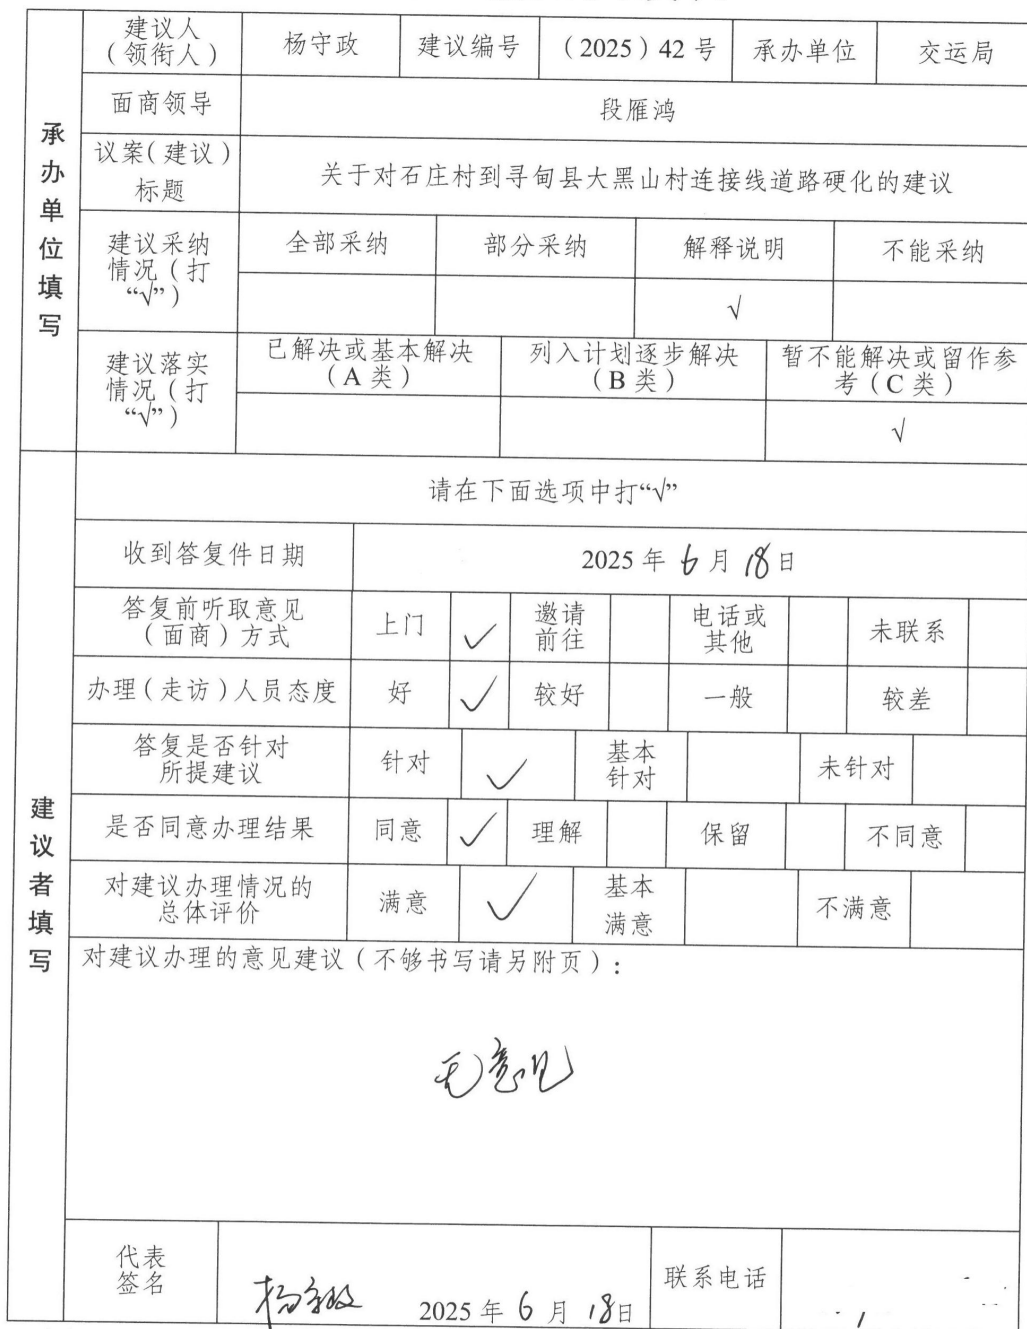 建议人
（领衔人）
杨守政
建议编号
（2025）42 号
承办单位
交运局
面商领导
段雁鸿
议案（建议）
标题
关于对石庄村到寻甸县大黑山村连接线道路硬化的建议
建议采纳
情况（打
“√”）
全部采纳
部分采纳
解释说明
不能采纳
√
建议落实
情况（打
“√”）
已解决或基本解决
（A 类）
列入计划逐步解决
（B 类）
暂不能解决或留作参
考（C 类）
√
承办单位填写
请在下面选项中打“√”
收到答复件日期
2025 年 6 月 18 日
答复前听取意见
（面商）方式
上门
✓
邀请
前往
电话或
其他
未联系
办理（走访）人员态度
好
✓
较好
一般
较差
答复是否针对
所提建议
针对
✓
基本
针对
未针对
是否同意办理结果
同意
✓
理解
保留
不同意
对建议办理情况的
总体评价
满意
✓
基本
满意
不满意
建议者填写
对建议办理的意见建议（不够书写请另附页）：
无意见
代表
签名
杨守政
2025 年 6 月 18日
联系电话